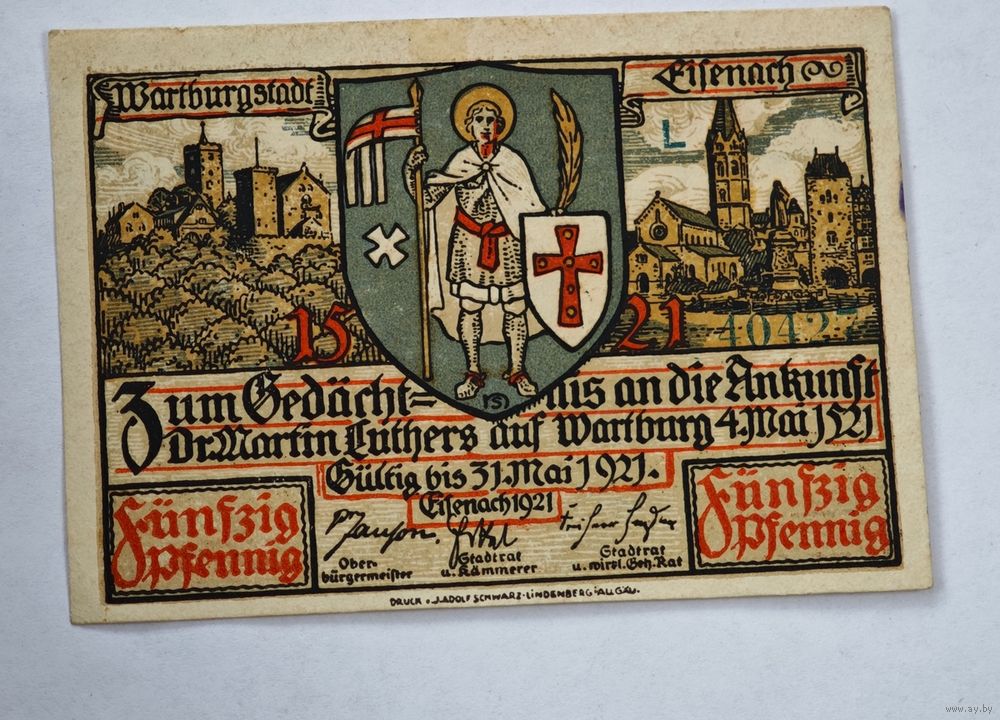 Wartburgstadt
Eisenach
L
15 21
40427
Zum Gedächt=nis an die Ankunft
Dr. Martin Luthers auf Wartburg 4. Mai 1521
Gültig bis 31. Mai 1921.
Eisenach 1921
Fünfzig
Pfennig
Fünfzig
Pfennig
Ober-
bürgermeister
Stadtrat
u. Kämmerer
Stadtrat
u. wirkl. Geh. Rat
DRUCK v. J. ADOLF SCHWARZ - LINDENBERG i. ALLGÄU.
www.ay.by